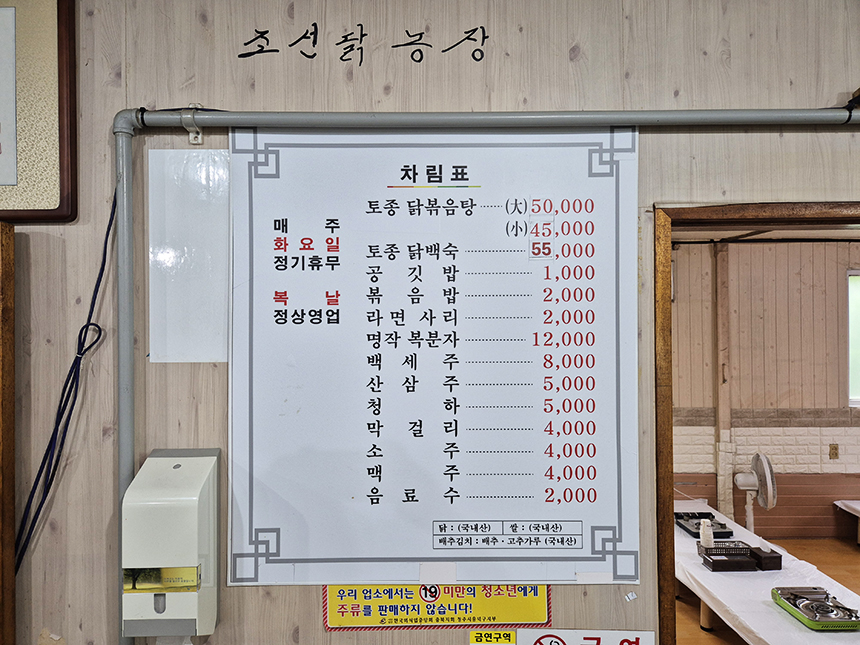 조선닭농장
차림표
토종 닭볶음탕 (大) 50,000
(小) 45,000
토종 닭백숙 55,000
공깃밥 1,000
볶음밥 2,000
라면사리 2,000
명작 복분자 12,000
백세주 8,000
산삼주 5,000
청하 5,000
막걸리 4,000
소주 4,000
맥주 4,000
음료수 2,000
매주
화요일
정기휴무
복날
정상영업
닭 : (국내산) 쌀 : (국내산)
배추김치 : 배추 · 고추가루 (국내산)
우리 업소에서는 19 미만의 청소년에게
주류를 판매하지 않습니다!
금연구역
금연